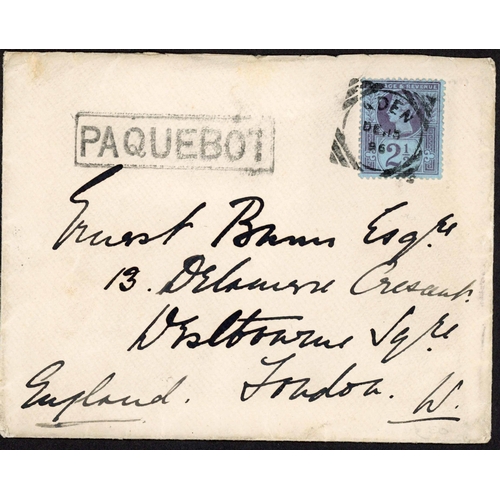 PAQUEBOT
POSTAGE & REVENUE
ADEN
DE 15
96
2½
Ernest Bunn Esqre
13. Delamere Cresent.
Westbourne Sqre
London. W.
England.